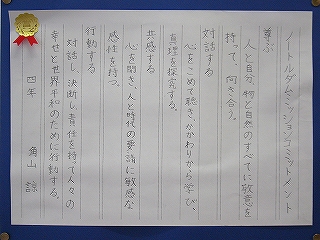 ノートルダムミッションコミットメント
尊ぶ
人と自分、物と自然のすべてに敬意を
持って、向き合う。
対話する
心をこめて聴き、かかわりから学び、
真理を探究する。
共感する
心を開き、人と時代の要請に敏感な
感性を持つ。
行動する
対話し、決断し、責任を持って人々の
幸せと世界平和のために行動する。
四年 角山 諒